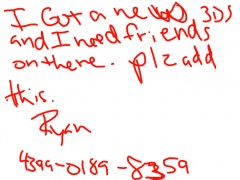 I Got a new 3DS
and I need friends
on there. plz add
this.
Ryan
4399-0189-8359